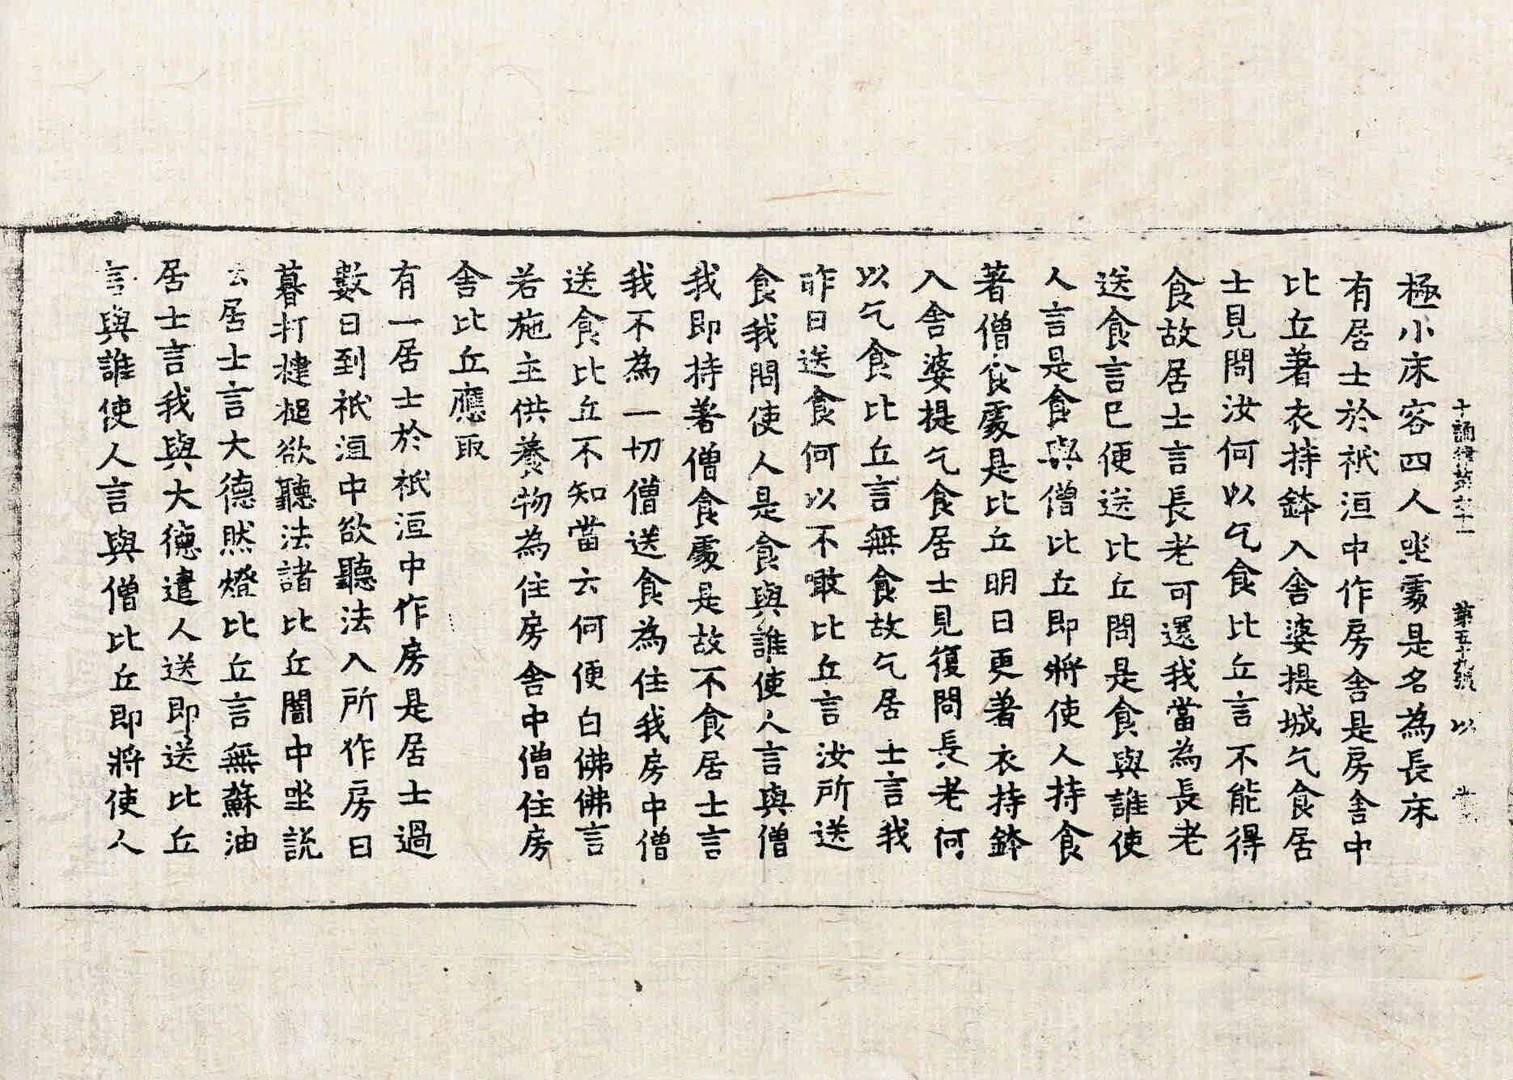 十誦律第六十一 第五十九張 以
極小床容四人坐處是名為長床
有居士於祇洹中作房舍是房舍中
比丘著衣持鉢入舍婆提城乞食居
士見問汝何以乞食比丘言不能得
食故居士言長老可還我當為長老
送食言已便送比丘問是食與誰使
人言是食與僧比丘即將使人持食
著僧食處是比丘明日更著衣持鉢
入舍婆提乞食居士見復問長老何
以乞食比丘言無食故乞居士言我
昨日送食何以不噉比丘言汝所送
食我問使人是食與誰使人言與僧
我即持著僧食處是故不食居士言
我不為一切僧送食為住我房中僧
送食比丘不知當云何便白佛佛言
若施主供養物為住房舍中僧住房
舍比丘應取
有一居士於祇洹中作房是居士過
數日到祇洹中欲聽法入所作房日
暮打揵槌欲聽法諸比丘闇中坐說
法居士言大德然燈比丘言無蘇油
居士言我與大德遣人送即送比丘
言與誰使人言與僧比丘即將使人